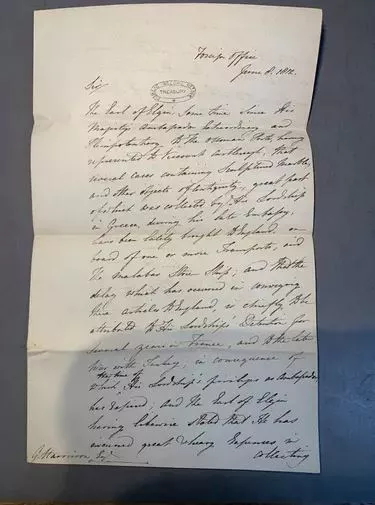 Foreign Office
June 8. 1812.
Sir,
TREASURY
The Earl of Elgin, some time since His
Majesty's Ambassador Extraordinary and
Plenipotentiary to the Ottoman Porte, having
represented to Viscount Castlereagh, that
several cases containing Sculptured Marbles,
and other objects of antiquity, great part
of which was collected by His Lordship
in Greece, during his late Embassy,
have been lately brought to England, on
board of one or more Transports, and
the Malabar Store Ship; and that the
delay which has occurred in conveying
these articles to England, is chiefly to be
attributed to His Lordship's Detention for
several years in France, and to the late
War with Turkey; in consequence of
which His Lordship's privilege as Ambassador
has expired; and the Earl of Elgin
having likewise stated that He has
incurred great & heavy Expenses in
collecting
G. Harrison Esqr.